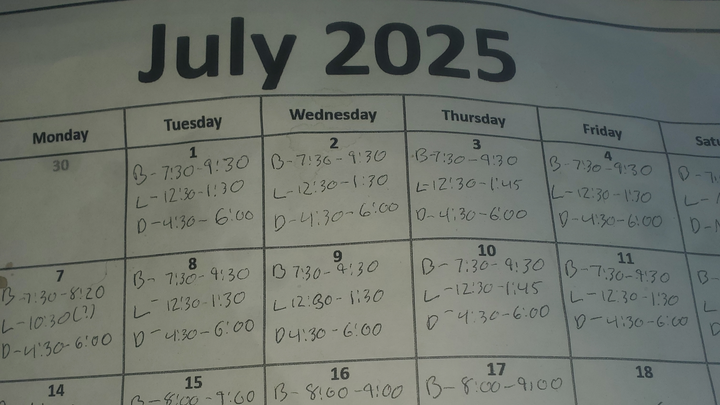 July 2025
Monday Tuesday Wednesday Thursday Friday Satu
30 1 2 3 4
B-7:30-9:30 B-7:30-9:30 B-7:30-9:30 B-7:30-9:30 D-7:
L-12:30-1:30 L-12:30-1:30 L-12:30-1:45 L-12:30-1:30 L-
D-4:30-6:00 D-4:30-6:00 D-4:30-6:00 D-4:30-6:00 D-
7 8 9 10 11
B-7:30-8:20 B-7:30-9:30 B 7:30-9:30 B-7:30-9:30 B-7:30-9:30 B-
L-10:30(?) L-12:30-1:30 L 12:30-1:30 L-12:30-1:45 L-12:30-1:30 L
D-4:30-6:00 D-4:30-6:00 D 4:30-6:00 D-4:30-6:00 D-4:30-6:00 D
14 15 16 17 18
B-8:00-9:00 B-8:00-9:00 B-8:00-9:00